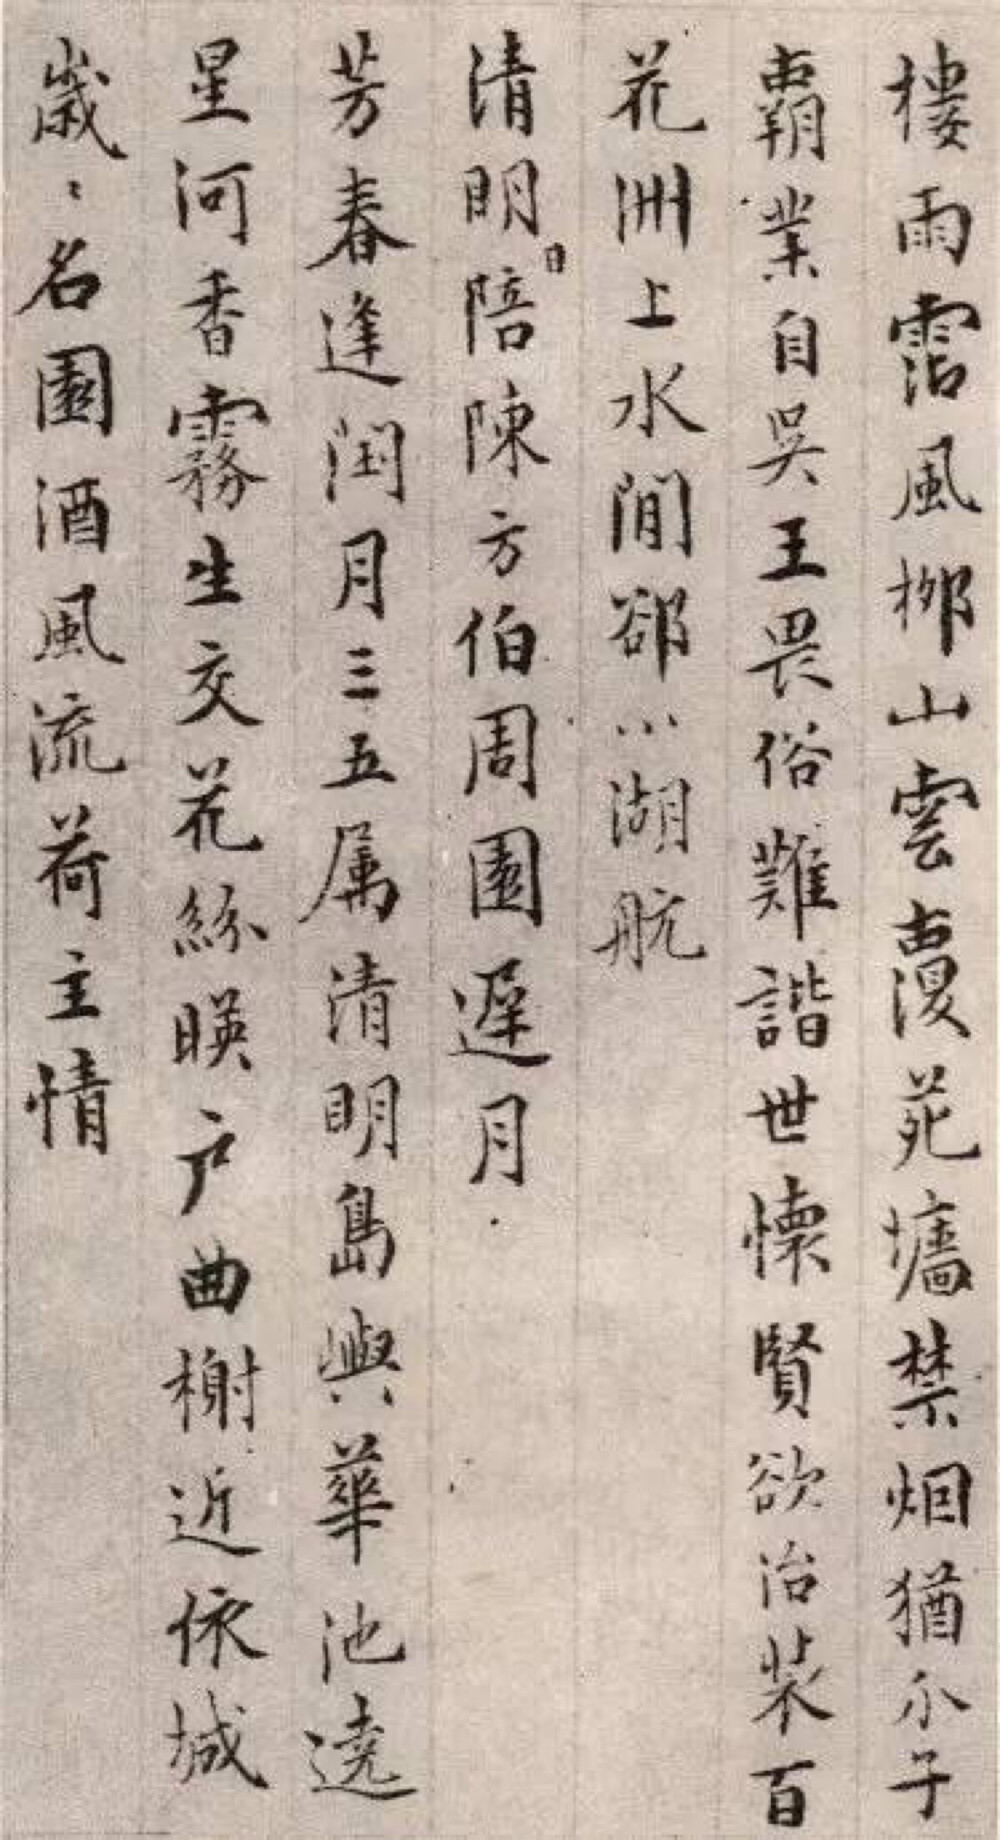 樓雨霑風柳山雲覆苑墻禁烟猶尒子
霸業自吳王畏俗難諧世懷賢欲治裝百
花洲上水閒郤小湖航
清明日陪陳方伯周園遲月
芳春逢閏月三五属清明島嶼華池遶
星河香霧生交花絲暎户曲榭近依城
嵗〻名園酒風流荷主情